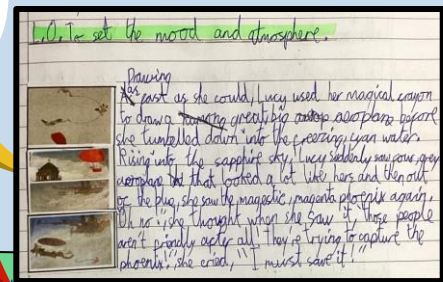 L.O. To set the mood and atmosphere.
Drawing
As fast as she could, Lucy used her magical crayon
to draw a great big aeroplane before
she tunnelled down into the creezing, cyan water.
Rising into the sapphire sky, Lucy suddenly saw cour, grey
aeroplane that looked a lot like hers and then out
oc the blue, she saw the magestic, magenta phoenix again.
"Oh no", she thought when she saw it, "those people
aren't criendly acter all". They're trying to capture the
phoenix", she cried, "I must save it!"